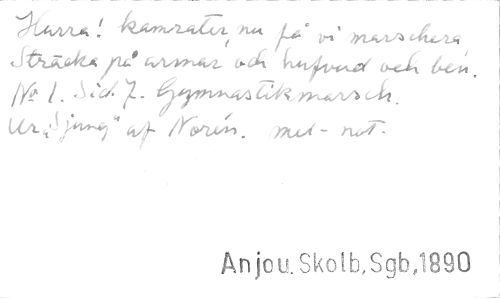 Hurra! kamrater, nu få vi marschera
Sträcka på armar, och hufvud och ben.
No 1. Sid. 7. Gymnastikmarsch.
Ur "Sjung" af Norén. mel- not.
Anjou. Skolb, Sgb, 1890